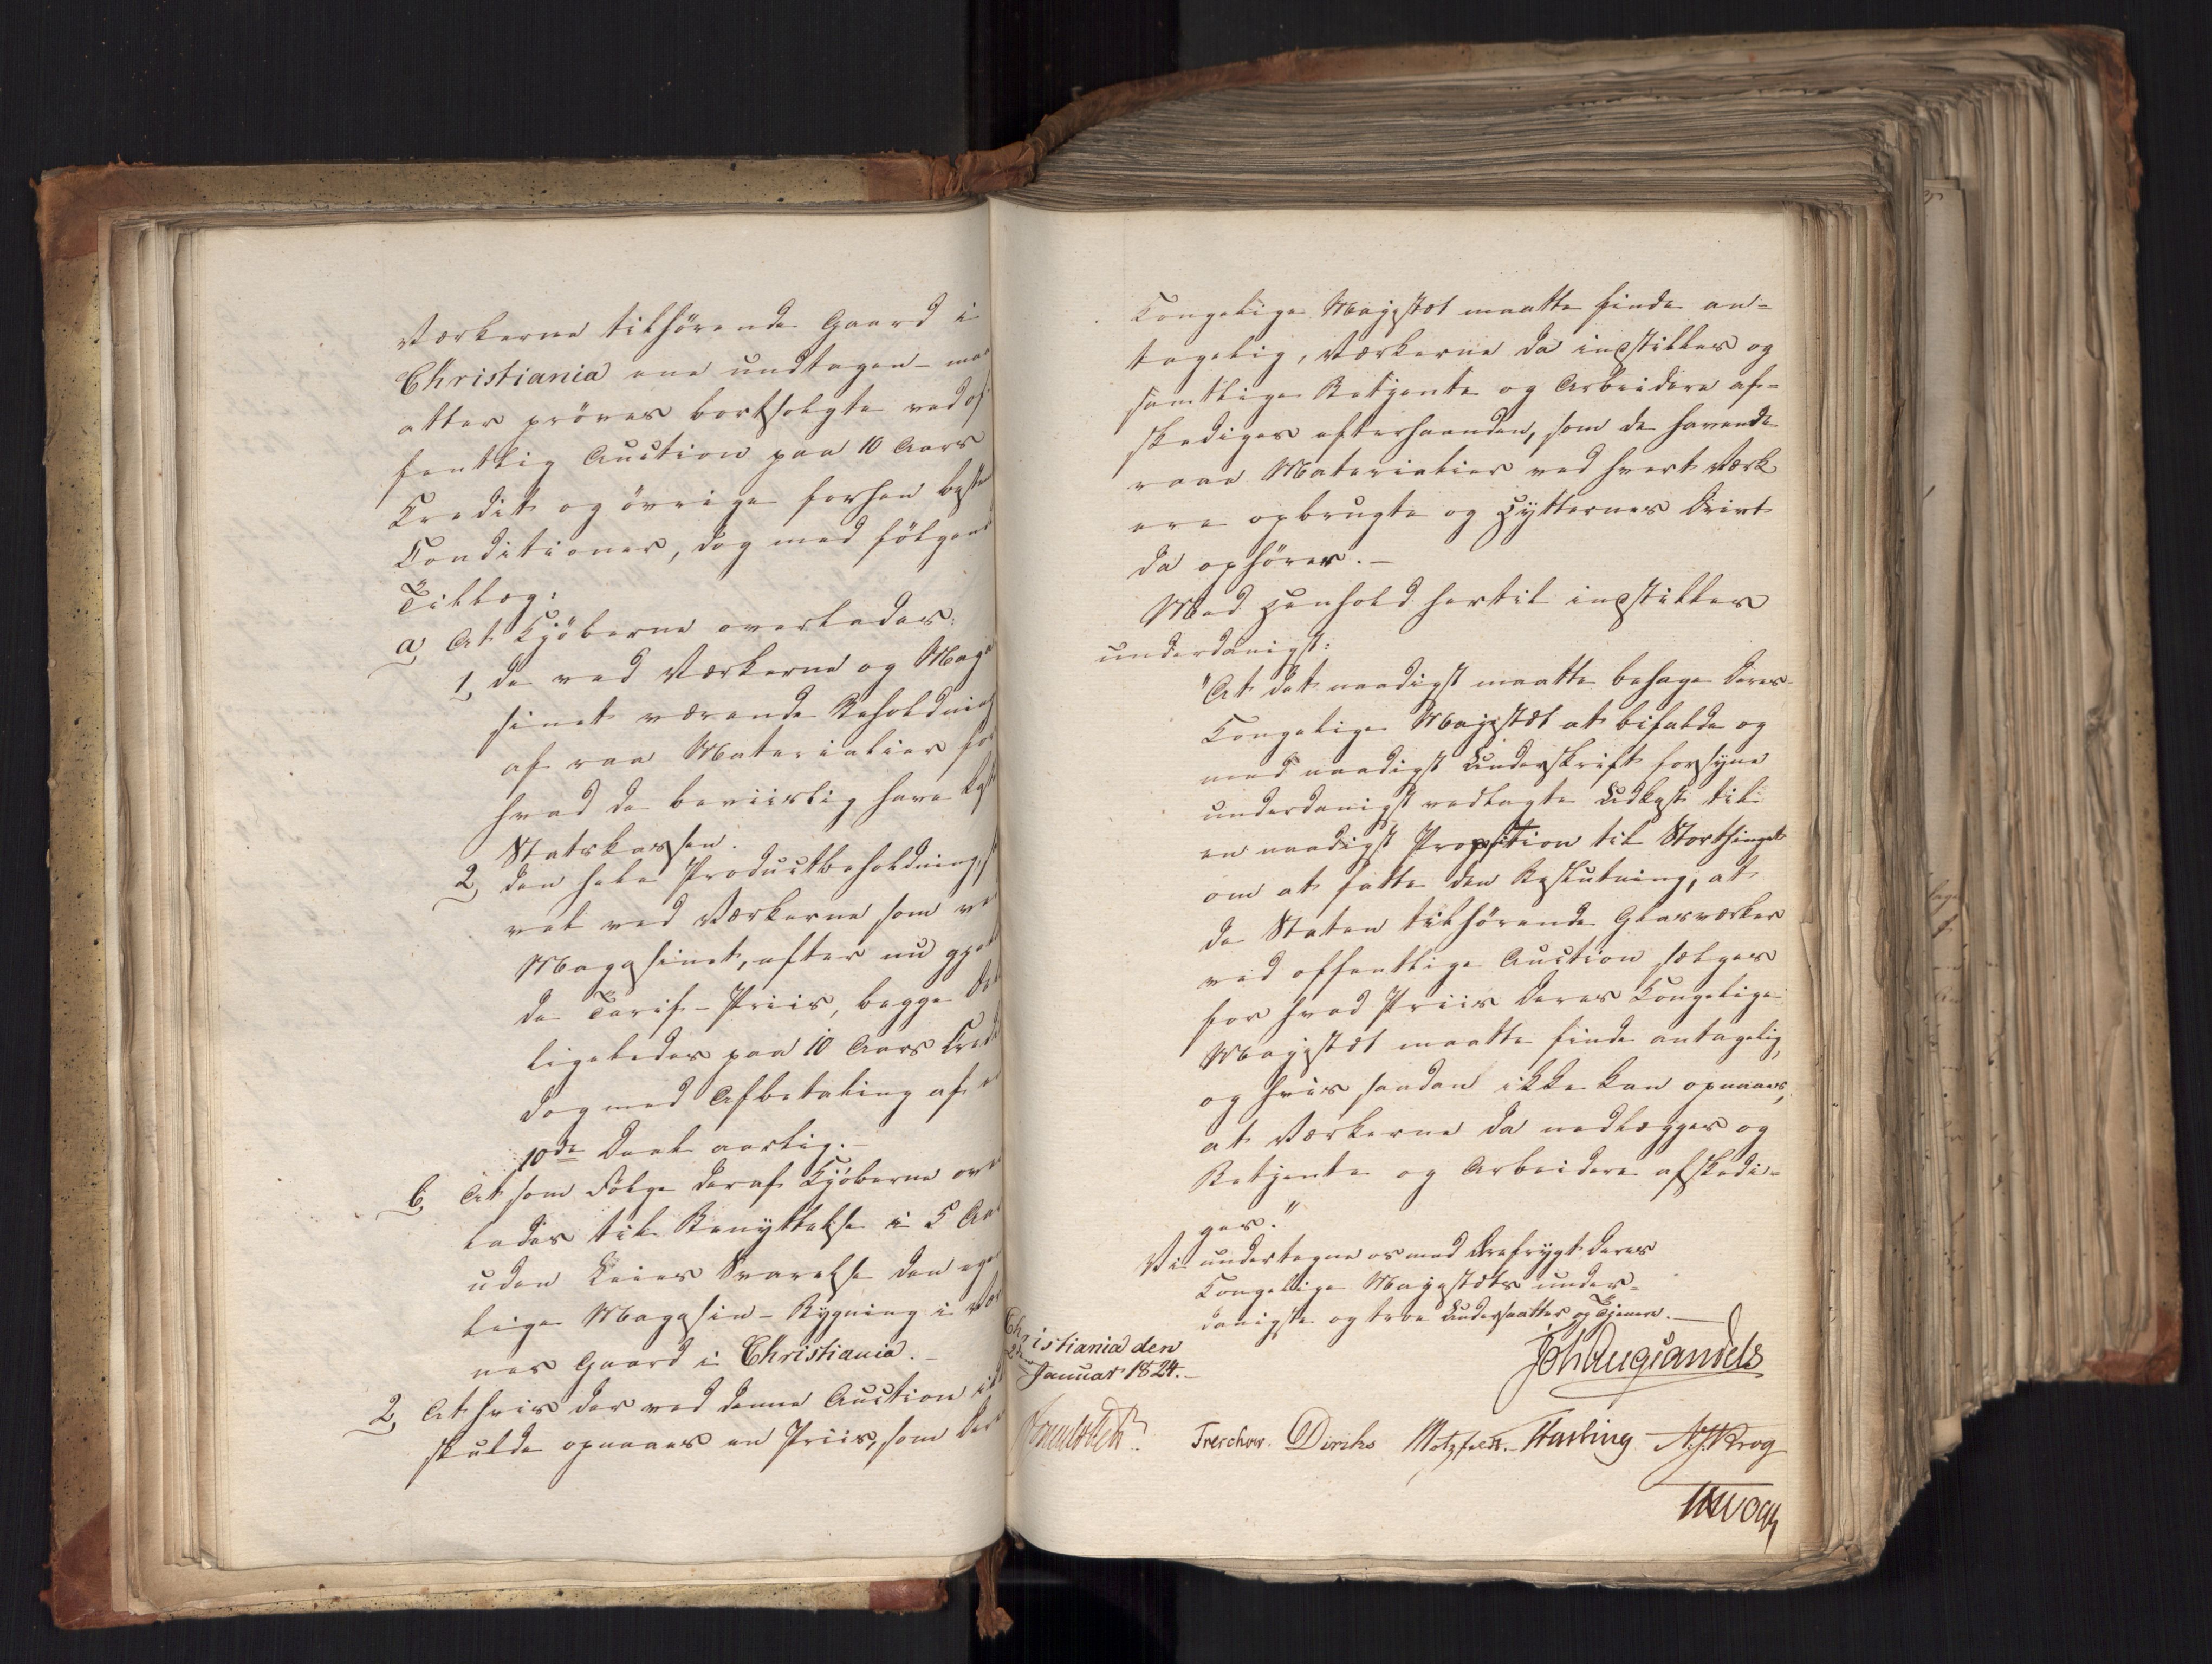 Værkerne tilhørende Gaard i
Christiania ene undtagen - maa
atter prøves bortsolgte ved of
fentlig Auction paa 10 Aars
Credit og øvrige forhen
Conditioner, dog med følgend
Tillæg:
a, At Kjøberne overlades:
1, de ved Værkerne og Maga
sinet værende Beholdning
af raa Materialier for
hvad de beviislig have
Statskassen.
2, den hele Productbeholdning, s
vel ved Værkerne som ve
Magasinet, efter nu
de Tarif-Priis, begge De
ligeledes paa 10 Aars Credi
dog med Afbetaling af e
10de Deel aarlig.-
b, At som Følge deraf Kjøberne ove
lades til Benyttelse i 5 Aa
uden Leies Svarelse den
lige Magasin-Bygning i Vær
nes Gaard i Christiania.-
2, At hvis der ved denne Auction ik
skulde opnaaes en Priis, som Der
Kongelige Majestæt maatte finde an-
tagelig, Værkerne da indstilles og
samtlige Betjente og Arbeidere af-
skediges efterhaanden, som de havende
raae Materialier ved hvert Værk
ere opbrugte og Hytternes Drivt
da ophører.-
Med Henhold hertil indstilles
underdanigst:
"At det naadigst maatte behage Deres
Kongelige Majestæt at bifalde og
med naadigst Underskrift forsyne
underdanigst vedlagte Udkast til
en naadigst Proposition til Storthinget
om at fatte den Beslutning, at
de Staten tilhørende Glasværker
ved offentlige Auction sælges
for hvad Priis Deres Kongelige
Majestæt maatte finde antagelig,
og hvis saadan ikke kan opnaaes,
at Værkerne da nedlægges og
Betjente og Arbeidere afskedi-
ges."
Vi undertegne os med Ærefrygt Deres
Kongelige Majestæts under-
danigste og troe Undersaatter og Tjenere.
Christiania den
Januar 1824.-
Joh Aug Sandels
Treschow. Diriks Motzfeldt. Fasting A. J. Krog
Vogt